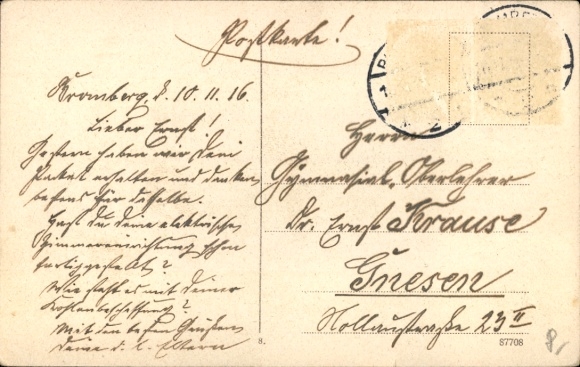 Postkarte!
Bromberg, d. 10.11.16.
Lieber Ernst!
Gestern haben wir Dein
Paket erhalten und danken
bestens für dasselbe.
Hast Du Deine elektrische
Zimmereinrichtung schon
fertiggestellt?
Wie steht es mit Deiner
Kohlenbeschaffung?
Mit den besten Grüßen
Deine d. l. Eltern
Herrn
Gymnasial-Oberlehrer
Dr. Ernst Krause
Gnesen
Hollaustraße 23 II
8.
87708